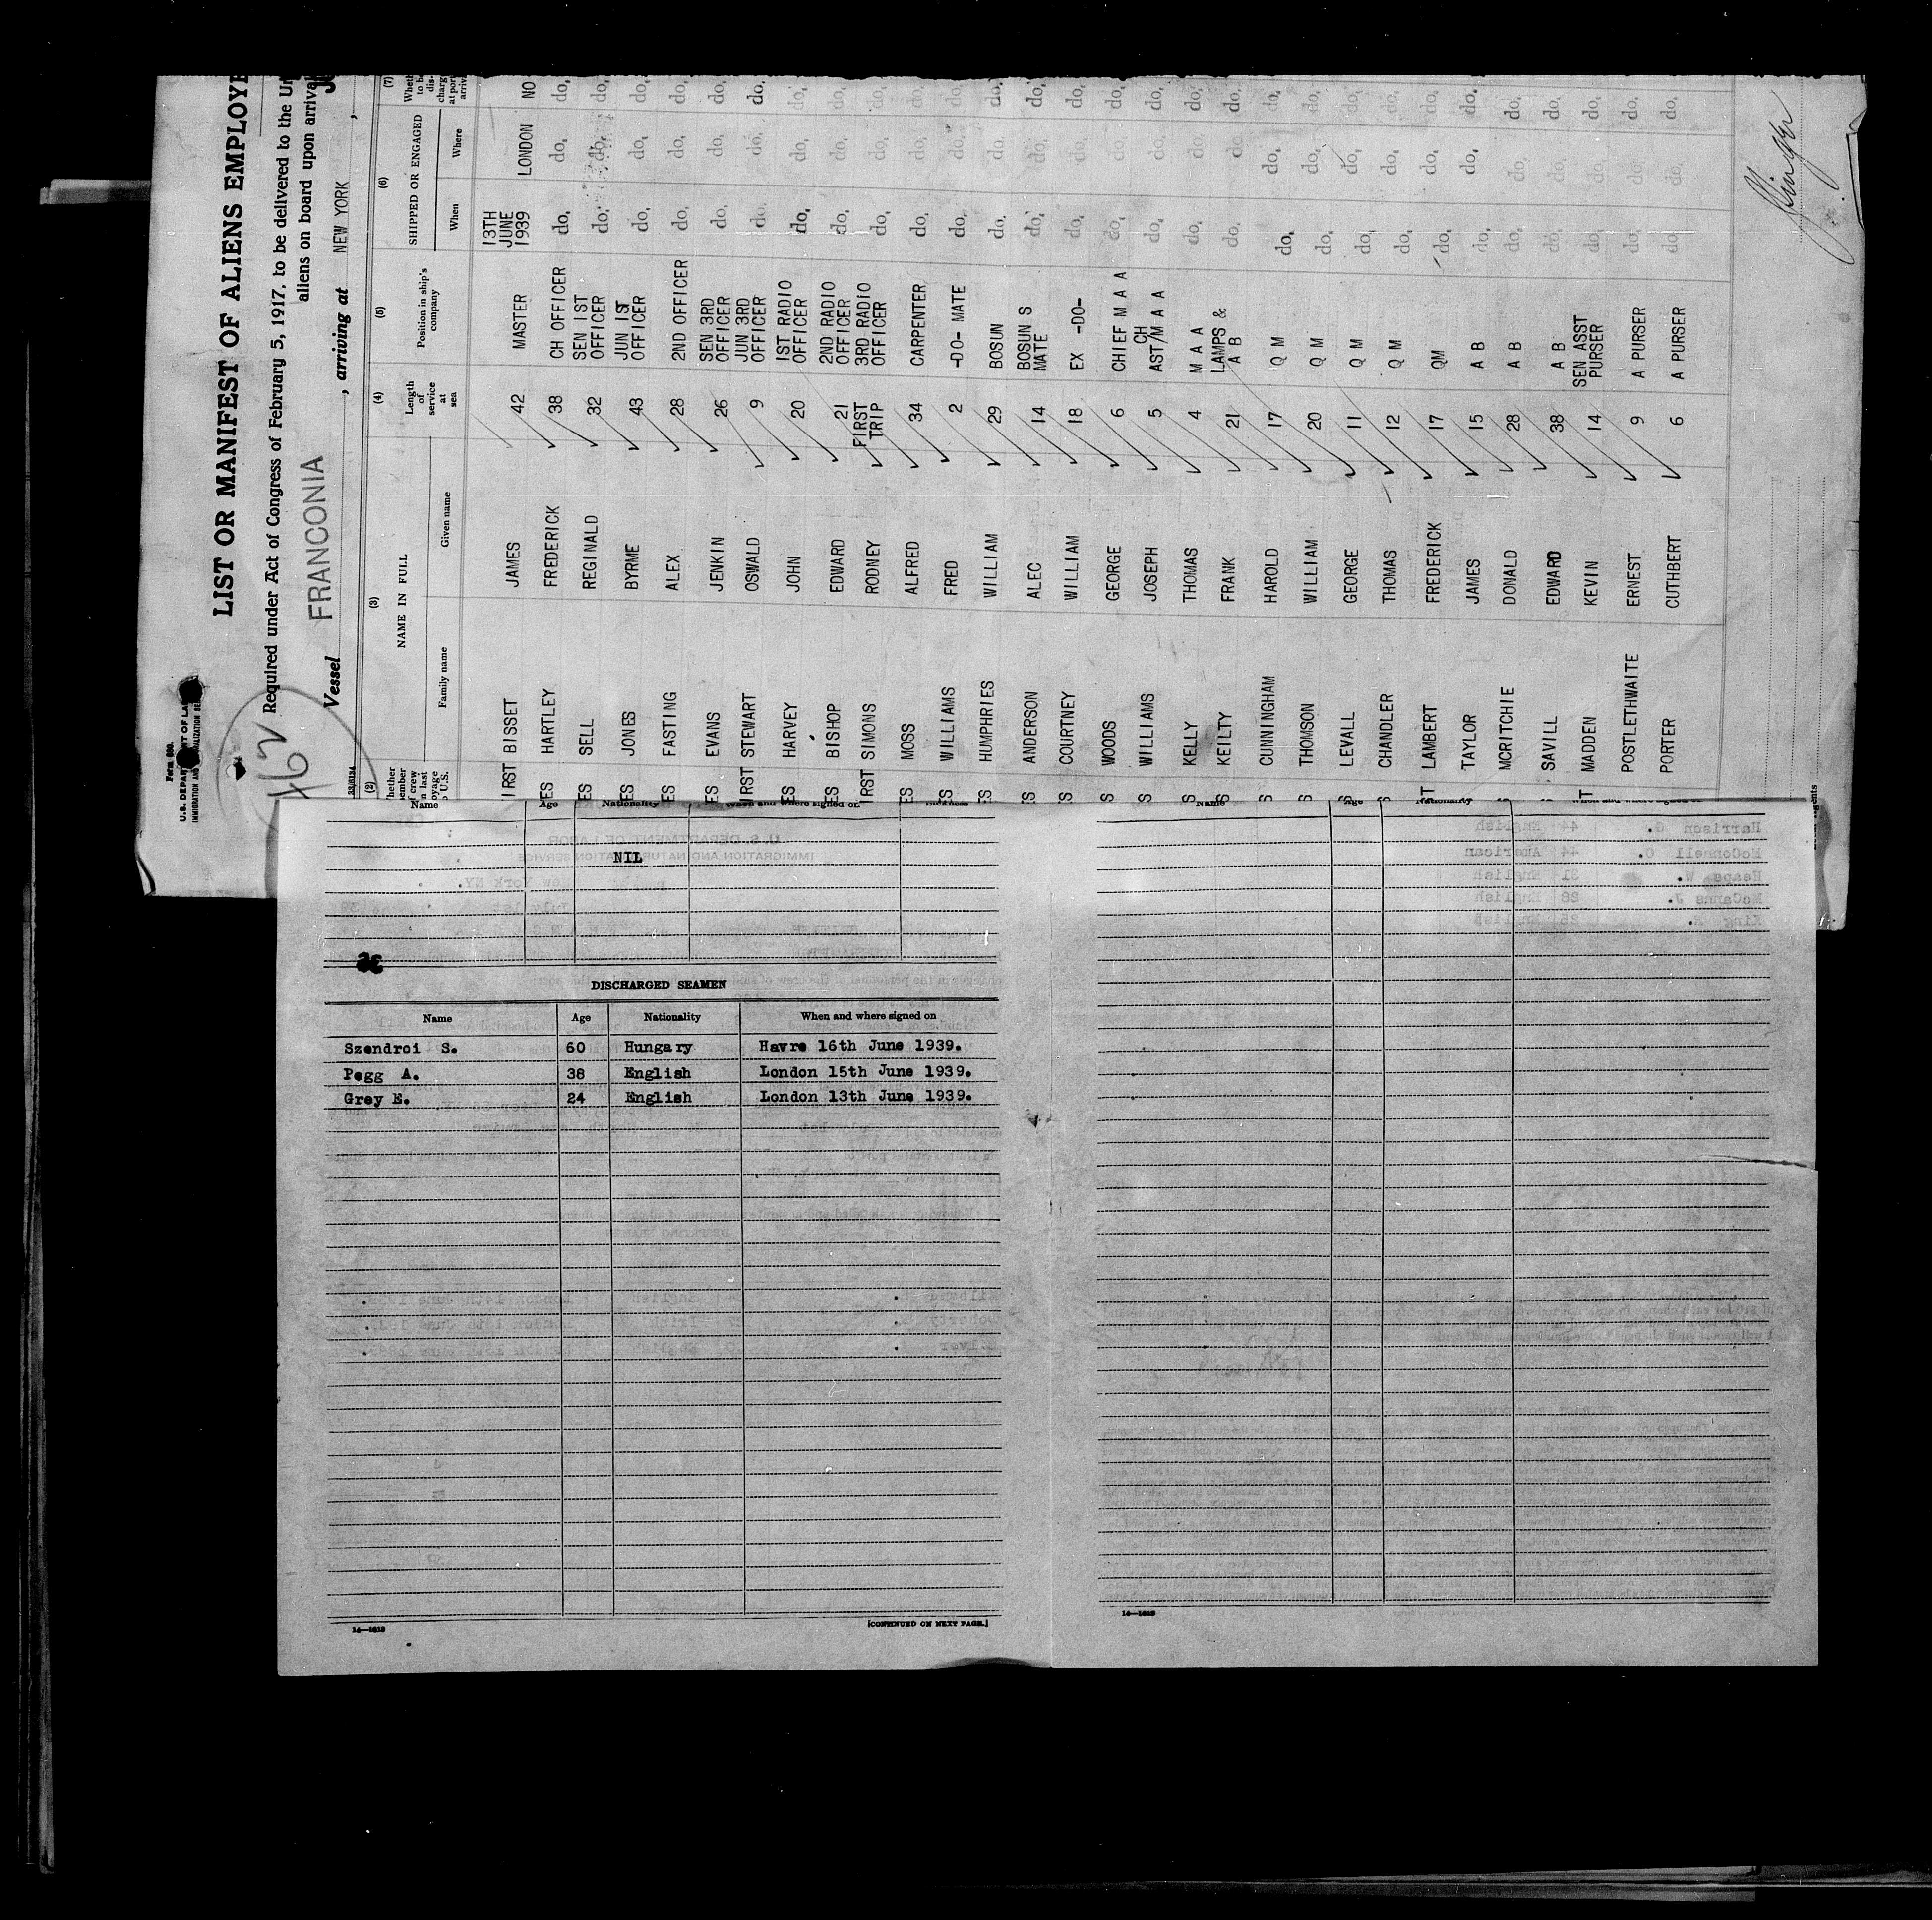 Form 680.
U.S. DEPARTMENT OF LA
IMMIGRATION AND NATURALIZATION SE
462
LIST OR MANIFEST OF ALIENS EMPLOYE
Required under Act of Congress of February 5, 1917, to be delivered to the Un
aliens on board upon arrival
Vessel FRANCONIA, arriving at NEW YORK,
(2) (3) (4) (5) (6) (7)
NAME IN FULL
Family name Given name
Length of service at sea
Position in ship's company
SHIPPED OR ENGAGED
When Where
IRST BISSET JAMES 42 MASTER 13TH JUNE 1939 LONDON NO
ES HARTLEY FREDERICK 38 CH OFFICER do. do. do.
ES SELL REGINALD 32 SEN 1ST OFFICER do. do. do.
ES JONES BYRME 43 JUN 1ST OFFICER do. do. do.
ES FASTING ALEX 28 2ND OFFICER do. do. do.
ES EVANS JENKIN 26 SEN 3RD OFFICER do. do. do.
IRST STEWART OSWALD 9 JUN 3RD OFFICER do. do. do.
ES HARVEY JOHN 20 1ST RADIO OFFICER do. do. do.
ES BISHOP EDWARD 21 2ND RADIO OFFICER do. do. do.
IRST SIMONS RODNEY FIRST TRIP 3RD RADIO OFFICER do. do. do.
ES MOSS ALFRED 34 CARPENTER do. do. do.
ES WILLIAMS FRED 2 -DO- MATE do. do. do.
ES HUMPHRIES WILLIAM 29 BOSUN do. do. do.
ES ANDERSON ALEC 14 BOSUN S MATE do. do. do.
S COURTNEY WILLIAM 18 EX -DO- do. do. do.
S WOODS GEORGE 6 CHIEF M A A do. do. do.
S WILLIAMS JOSEPH 5 CH AST/M A A do. do. do.
S KELLY THOMAS 4 M A A do. do. do.
S KEILTY FRANK 21 LAMPS & A B do. do. do.
S CUNNINGHAM HAROLD 17 Q M do. do. do.
S THOMSON WILLIAM 20 Q M do. do. do.
S LEVALL GEORGE 11 Q M do. do. do.
S CHANDLER THOMAS 12 Q M do. do. do.
T LAMBERT FREDERICK 17 QM do. do. do.
TAYLOR JAMES 15 A B do. do. do.
S MCRITCHIE DONALD 28 A B do. do. do.
SAVILL EDWARD 38 A B do. do. do.
T MADDEN KEVIN 14 SEN ASST PURSER do. do. do.
POSTLETHWAITE ERNEST 9 A PURSER do. do. do.
PORTER CUTHBERT 6 A PURSER do. do. do.
Name Age Nationality When and where signed on
NIL
DISCHARGED SEAMEN
Name Age Nationality When and where signed on
Szendroi S. 60 Hungary Havre 16th June 1939.
Pegg A. 38 English London 15th June 1939.
Grey E. 24 English London 13th June 1939.
14—1613
[CONTINUED ON NEXT PAGE.]
Name Age Nationality
14—1613